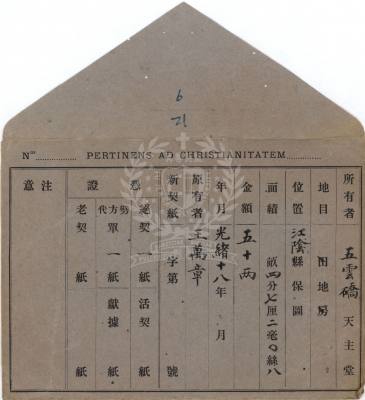 N°
PERTINENS AD CHRISTIANITATEM
所有者 五雲橋 天主堂
地目 田地房
位置 江陰縣 保圖
面積 畝四分七厘二毫〇絲八
金額 五十兩
年月 光緒十八年 月
原有者 王萬章
新契紙 字第 號
憑證
絕契 一紙 活契 紙
代方勞單 一紙 獻據 紙
老契 紙 紙
注意